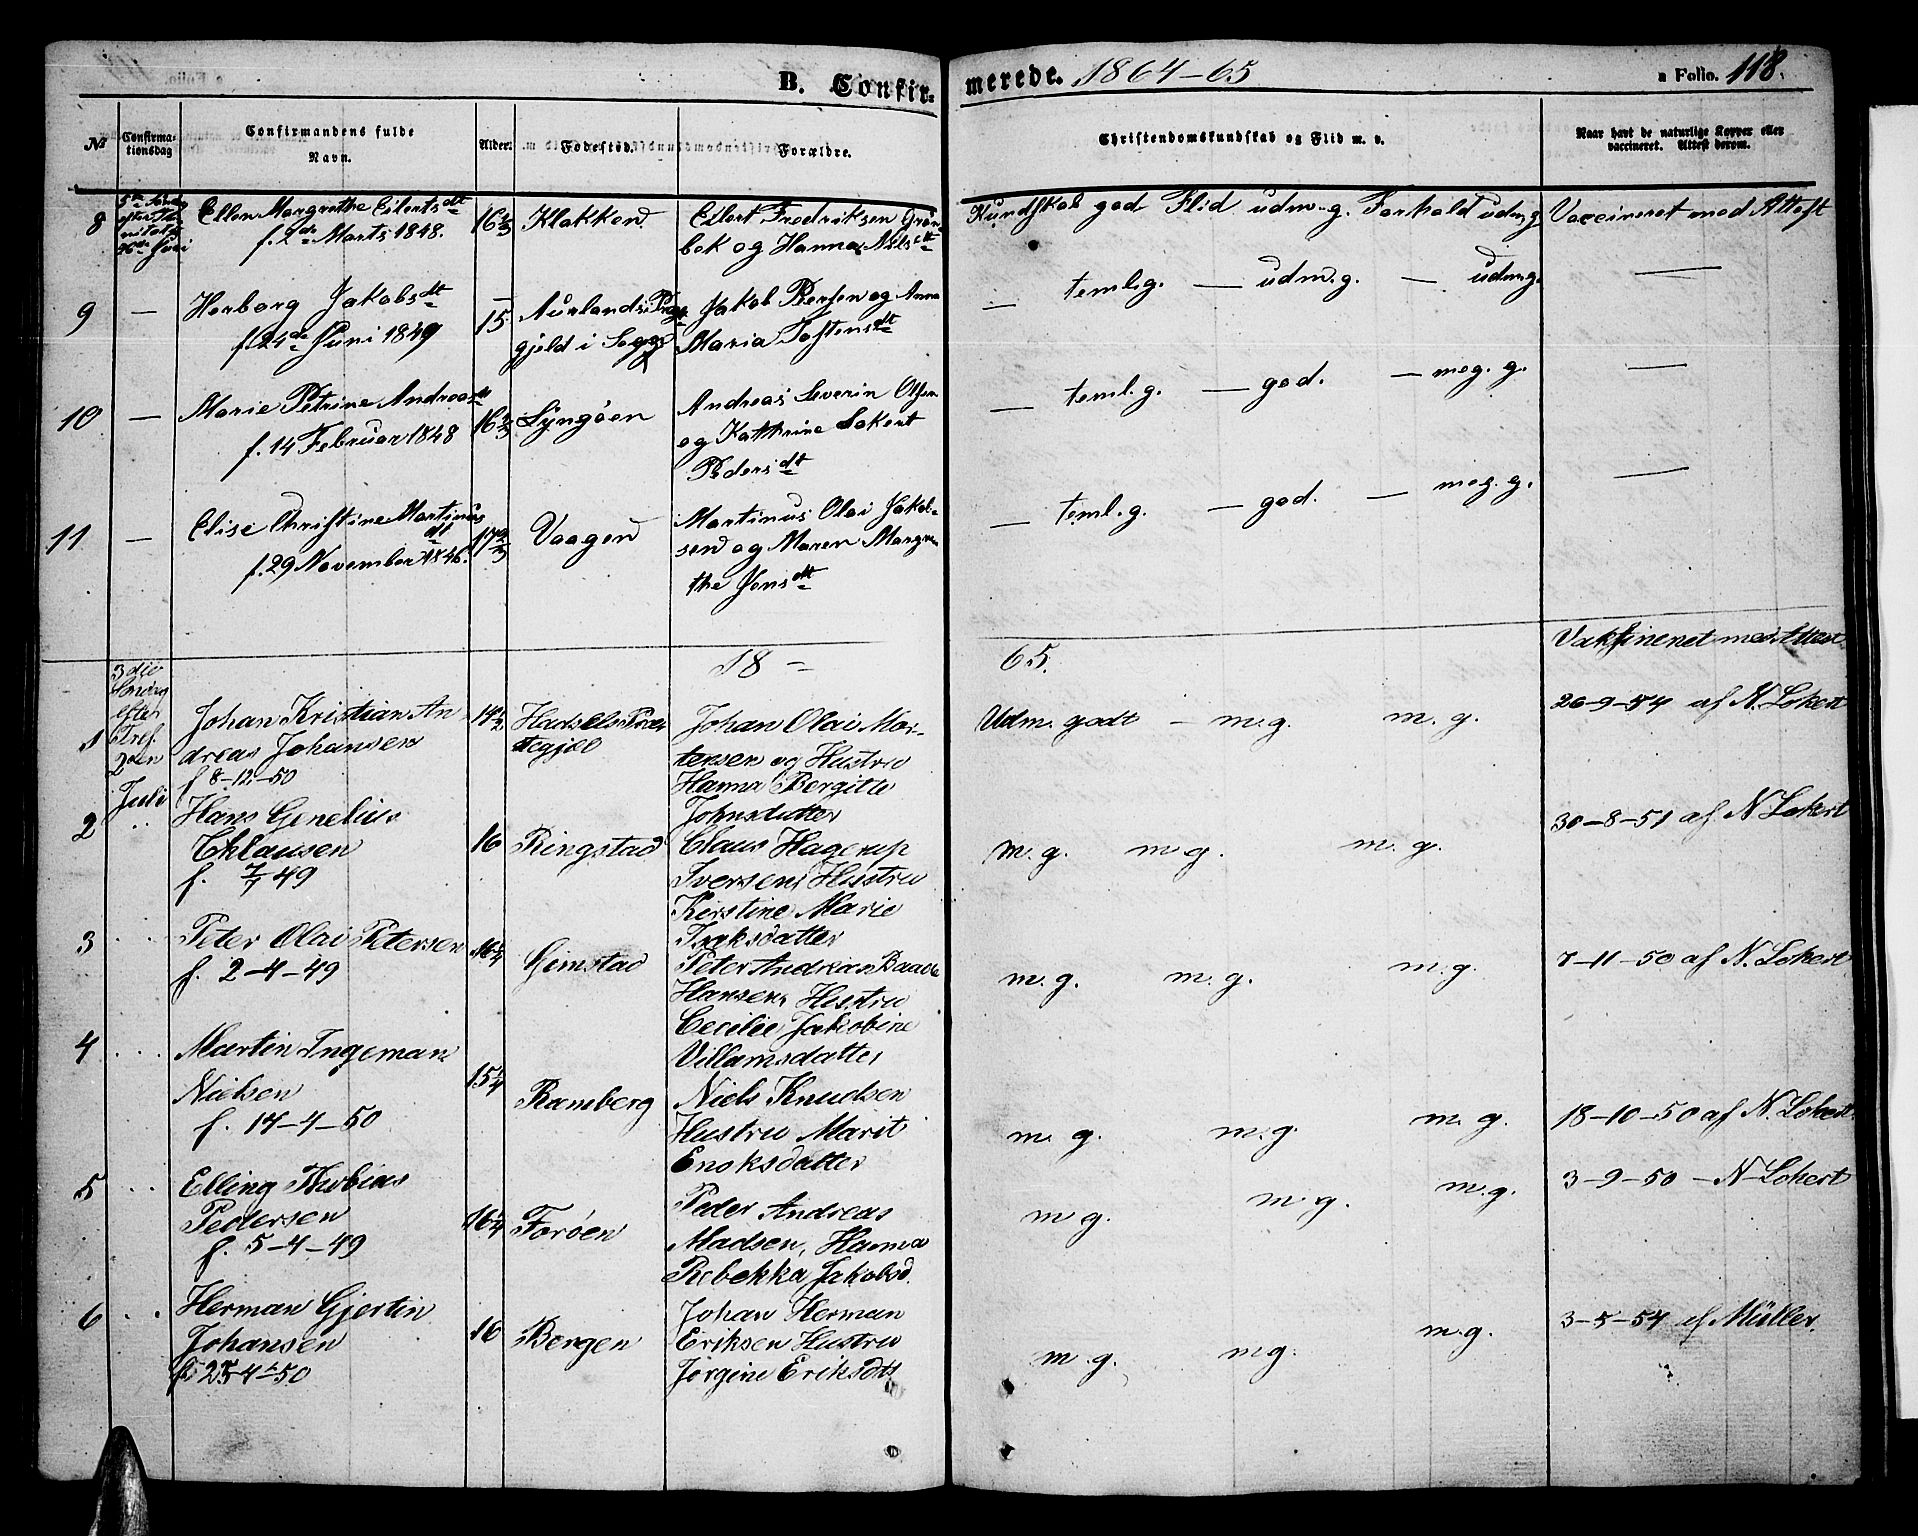 B. Confirmerede. 1864-65
a Folio. 118.
№ Confirmationsdag Confirmandens fulde Navn. Alder. Fødested. Forældre. Christendomskundskab og Flid m. v. Naar havt de naturlige Kopper eller vaccineret. Attest derom.
8 Ellen Margrethe Eilertsdt 16 2/3 Klakken Eilert Fredriksen Grøn- Kundskab god Flid udm. g. Forhold udm.g. Vaccineret med Attest
f. 2de Marts 1848. bek og Hanna Nilsdt
9 — Herborg Jakobsdt 15 Aurlands Præste- Jakob Persen og Anna — teml. g. — udm. g. — udm.g. —
f. 24de Juni 1849 gjeld i Sogn Maria Tostensdt
10 — Marie Petrine Andreasdt 16 2/3 Lyngøen Andreas Severin Olsen — teml. g. — god. — meg. g. —
f. 14 Februar 1848 og Kathrine Lokert
Pedersdt
11 — Elise Christine Martinusdt 17 2/3 Vaagen Martinus Olai Jakob- — teml. g. — god. — meg. g. —
f. 29 November 1846. sen og Maren Margre-
the Jensdt
18 - 65. Vaksineret med Attest
3die Søndag efter Tref. 2den Juli
1 Johan Kristian An 14 1/2 Hadsels Præ- Johan Olai Mor- Udm. godt - m. g. m. g. 26-9-54 af N. Lokert
dreas Johansen stegjel tensen og Hustru
f 8-12-50 Hanna Bergitte
Johnsdatter
2 Hans Genelius 16 Ringstad Claus Hagerup m. g. m. g. m. g. 30-8-51 af N Lokert
Cklausen Iversen, Hustru
f. 7/7 49 Kirstine Marie
Isaksdatter
3 Peter Olai Petersen 16 1/4 Gimstad Peter Andreas Baade m. g. m. g. m. g. 7-11-50 af N. Lokert
f. 2-4-49 Hansen, Hustru
Cecilie Jakobine
Villamsdatter
4 Martin Ingeman 15 1/4 Ramberg Niels Knudsen m. g. m. g. m. g. 18-10-50 af N. Lokert
Nielsen Hustru Marit
f. 17-4-50 Enoksdatter
5 Elling Thobias 16 1/4 Forøen Peder Andreas m g. m. g. m. g. 3-9-50 - N Lokert
Pedersen Madsen, Hanna
f. 5-4-49 Rebekka Jakobsd.
6 Herman Gjertin 16 Bergen Johan Herman m. g. m g. m. g. 3-5-54 af Müller.
Johansen Eriksen Hustru
f. 25-4-50 Jørgine Eriksdtt